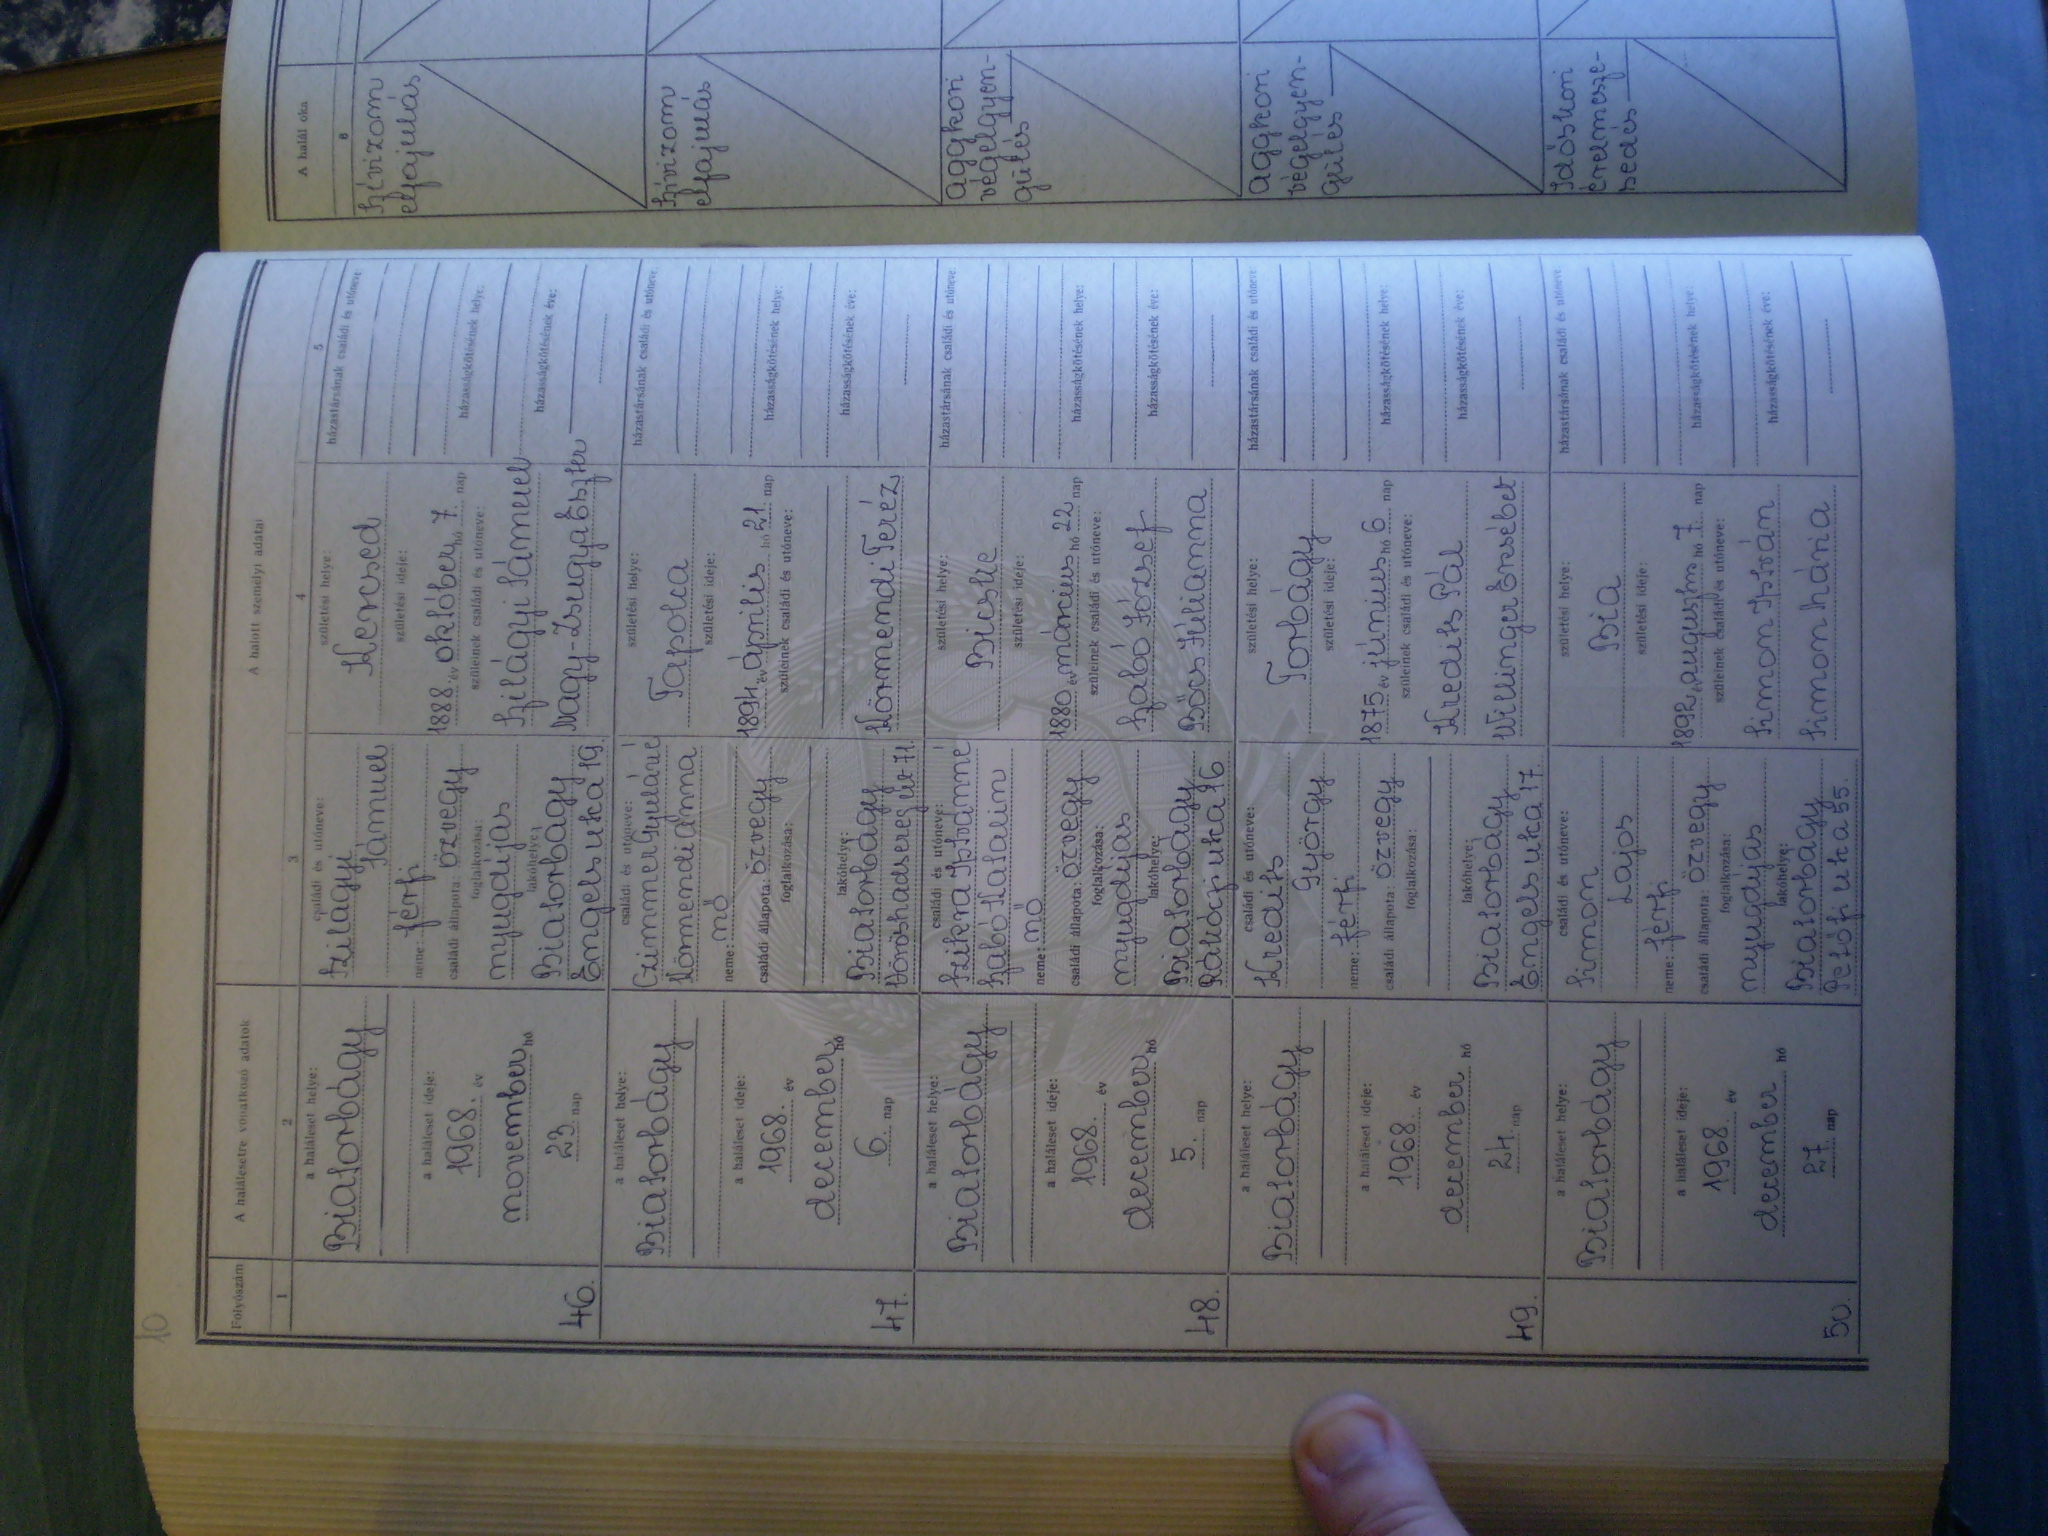 10
Folyószám
A halálesetre vonatkozó adatok
A halott személyi adatai
A halál oka
1
2
3
4
5
6
46.
a haláleset helye:
Biatorbágy
a haláleset ideje:
1968. év
november hó
23. nap
családi és utóneve:
Szilágyi
Sámuel
neme: férfi
családi állapota: özvegy
foglalkozása:
nyugdíjas
lakóhelye:
Biatorbágy
Engels utca 19.
születési helye:
Kercsed
születési ideje:
1888. év október hó 7. nap
szüleinek családi és utóneve:
Szilágyi Sámuel
Nagy-Zsugya Eszter
házastársának családi és utóneve:
házasságkötésének helye:
házasságkötésének éve:
Szívizom
elfajulás
47.
a haláleset helye:
Biatorbágy
a haláleset ideje:
1968. év
december hó
6. nap
családi és utóneve:
Czimmer Gyuláné
Körmendi Anna
neme: nő
családi állapota: özvegy
foglalkozása:
lakóhelye:
Biatorbágy
Vöröshadsereg út 71.
születési helye:
Tapolca
születési ideje:
1894. év április hó 21. nap
szüleinek családi és utóneve:
Körmendi Teréz
házastársának családi és utóneve:
házasságkötésének helye:
házasságkötésének éve:
Szívizom
elfajulás
48.
a haláleset helye:
Biatorbágy
a haláleset ideje:
1968. év
december hó
5. nap
családi és utóneve:
Szikra Istvánné
Szabó Katalin
neme: nő
családi állapota: özvegy
foglalkozása:
nyugdíjas
lakóhelye:
Biatorbágy
Rákóczi utca 16
születési helye:
Bicske
születési ideje:
1880 év március hó 22 nap
szüleinek családi és utóneve:
Szabó József
Bőcs Julianna
házastársának családi és utóneve:
házasságkötésének helye:
házasságkötésének éve:
Aggkori
végelgyen-
gülés
49.
a haláleset helye:
Biatorbágy
a haláleset ideje:
1968. év
december hó
24. nap
családi és utóneve:
Kredits
György
neme: férfi
családi állapota: özvegy
foglalkozása:
lakóhelye:
Biatorbágy
Engels utca 17.
születési helye:
Torbágy
születési ideje:
1875 év június hó 6 nap
szüleinek családi és utóneve:
Kredits Pál
Willinger Erzsébet
házastársának családi és utóneve:
házasságkötésének helye:
házasságkötésének éve:
Aggkori
végelgyen-
gülés
50.
a haláleset helye:
Biatorbágy
a haláleset ideje:
1968. év
december hó
27. nap
családi és utóneve:
Simon
Lajos
neme: férfi
családi állapota: özvegy
foglalkozása:
nyugdíjas
lakóhelye:
Biatorbágy
Petőfi utca 55.
születési helye:
Bia
születési ideje:
1892 év augusztus hó 7. nap
szüleinek családi és utóneve:
Simon István
Simon Mária
házastársának családi és utóneve:
házasságkötésének helye:
házasságkötésének éve:
Időskori
érelmesze-
sedés